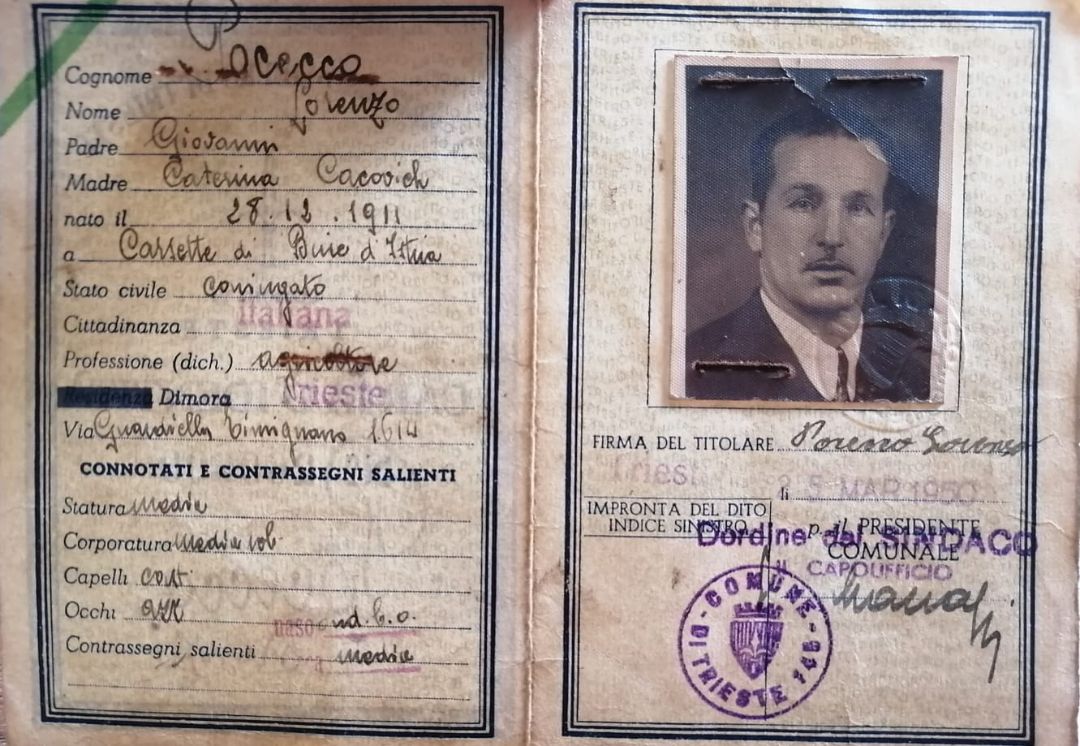 Cognome Pocecco
Nome Lorenzo
Padre Giovanni
Madre Caterina Cacovich
nato il 28.12.1911
a Cassette di Buie d'Istria
Stato civile coniugato
Cittadinanza italiana
Professione (dich.) agricoltore
Residenza Dimora Trieste
Via Guardiella Timignano 1614
CONNOTATI E CONTRASSEGNI SALIENTI
Statura media
Corporatura media rob.
Capelli cast.
Occhi
naso ond. b. o.
Contrassegni salienti media
FIRMA DEL TITOLARE Lorenzo
Triest li 25 MAR 1950
IMPRONTA DEL DITO
INDICE SINISTRO
p. il PRESIDENTE
D'ordine del SINDACO
COMUNALE
IL CAPOUFFICIO
COMUNE DI TRIESTE 148